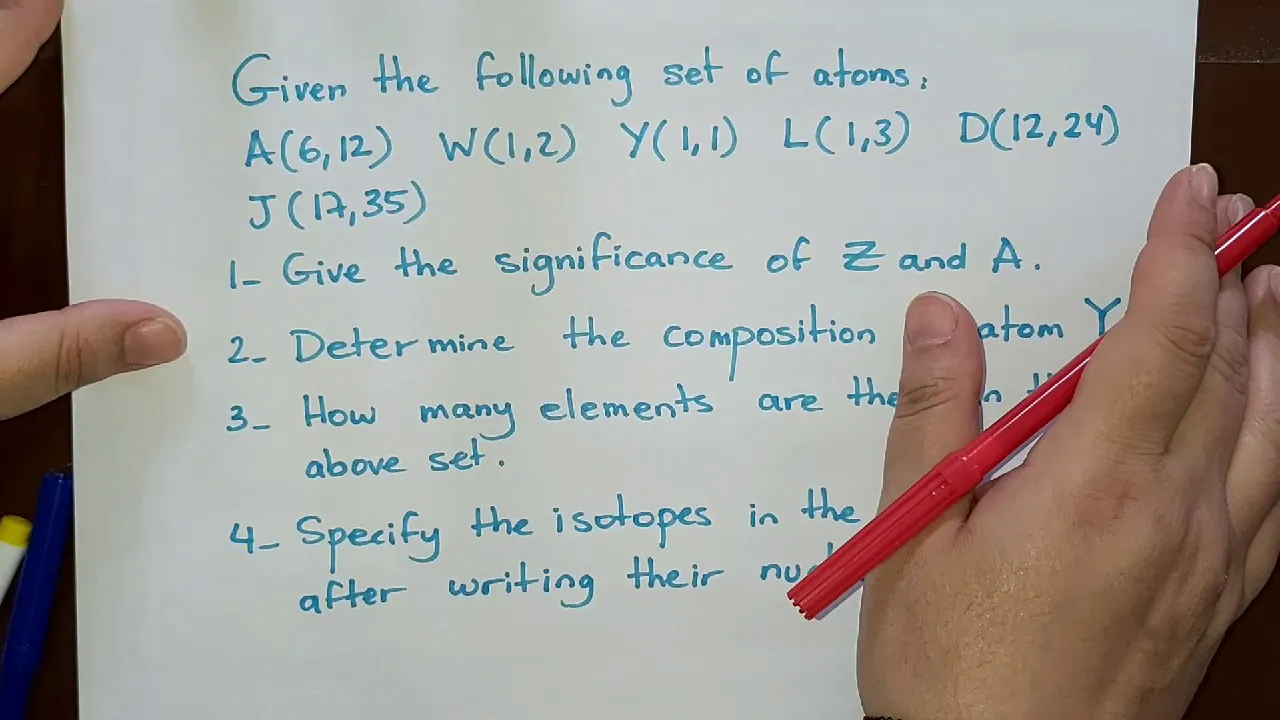 Given the following set of atoms:
A(6,12) W(1,2) Y(1,1) L(1,3) D(12,24)
J(17,35)
1- Give the significance of Z and A.
2- Determine the composition atom Y
3- How many elements are
above set.
4- Specify the isotopes in the
after writing their